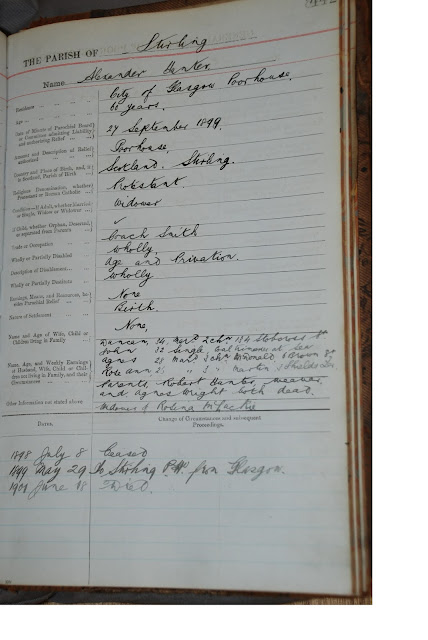 THE PARISH OF Stirling
Name Alexander Hunter
Residence City of Glasgow Poorhouse.
Age 60 years.
Date of Minute of Parochial Board
or Committee admitting Liability
and authorising Relief 27 September 1899.
Amount and Description of Relief
authorised Poorhouse.
Country and Place of Birth, and, if
in Scotland, Parish of Birth Scotland. Stirling.
Religious Denomination, whether
Protestant or Roman Catholic Protestant.
Condition—If Adult, whether Married
or Single, Widow or Widower Widower
If Child, whether Orphan, Deserted,
or separated from Parents ✓
Trade or Occupation Coach Smith
Wholly or Partially Disabled Wholly.
Description of Disablement Age and Privation.
Wholly or Partially Destitute Wholly
Earnings, Means, and Resources, be-
sides Parochial Relief None
Nature of Settlement Birth.
Name and Age of Wife, Child or
Children living in Family None,
Name, Age, and Weekly Earnings
of Husband, Wife, Child or Chil-
dren not living in Family, and their
Circumstances
Duncan, 34, Mard 2 Chn 154 Stobcross St
John 32 Single at sea
Agnes 28 Mard 3 Chn McDonald, Brown St
Rose Ann 25 " 3 " Martin Shields
Parents, Robert Hunter, weaver,
and Agnes Wright both dead.
Other Information not stated above Widower of Rosina McLackie
Dates. Change of Circumstances and subsequent
Proceedings.
1898 July 8 Ceased
1899 May 29 To Stirling P.H. from Glasgow.
1901 June 18 Died.